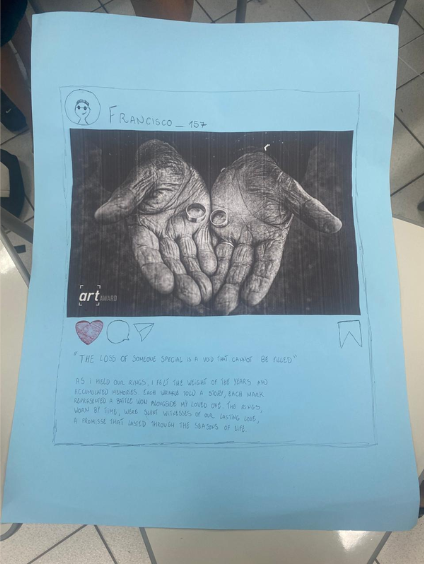 FRANCISCO_157
art
"THE LOSS OF SOMEONE SPECIAL IS A VOID THAT CANNOT BE FILLED"
AS I HELD OUR RINGS, I FELT THE WEIGHT OF THE YEARS AND
ACCUMULATED MEMORIES. EACH WRINKLE TOLD A STORY, EACH MARK
REPRESENTED A BATTLE WON ALONGSIDE MY LOVED ONE. THE RINGS,
WORN BY TIME, WERE SILENT WITNESSES OF OUR LASTING LOVE,
A PROMISE THAT LASTED THROUGH THE SEASONS OF LIFE.